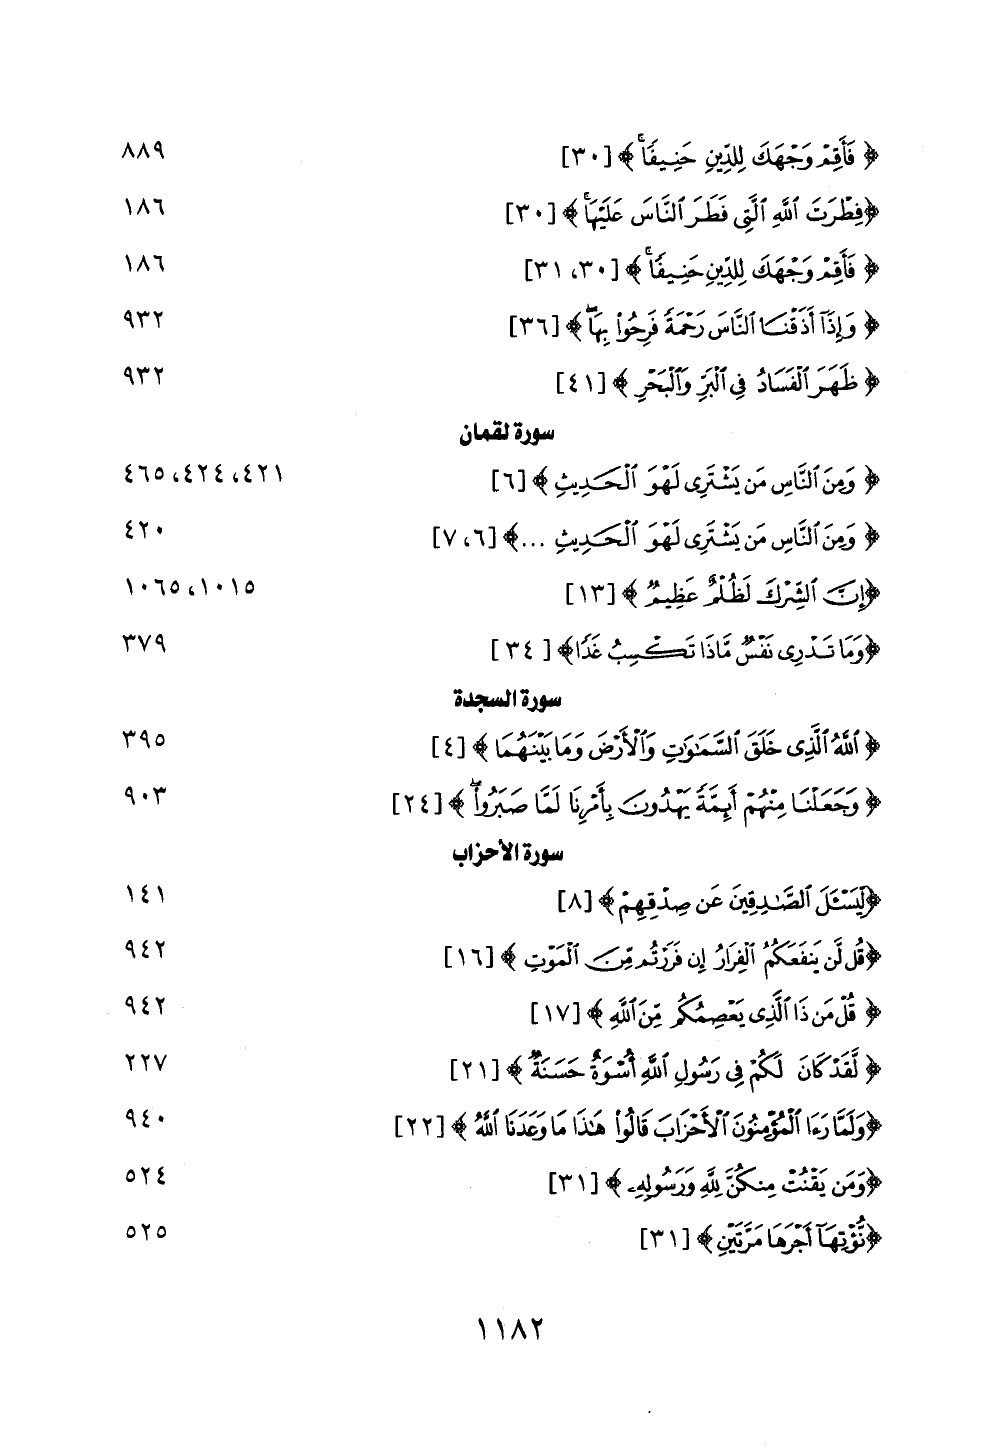 ﴿ فَأَقِمْ وَجْهَكَ لِلدِّينِ حَنِيفًاۚ ﴾ [٣٠] ٨٨٩
﴿فِطْرَتَ ٱللَّهِ ٱلَّتِى فَطَرَ ٱلنَّاسَ عَلَيْهَاۚ ﴾ [٣٠] ١٨٦
﴿ فَأَقِمْ وَجْهَكَ لِلدِّينِ حَنِيفًاۚ ﴾ [٣٠، ٣١] ١٨٦
﴿ وَإِذَآ أَذَقْنَا ٱلنَّاسَ رَحْمَةً فَرِحُوا۟ بِهَاۖ ﴾ [٣٦] ٩٣٢
﴿ ظَهَرَ ٱلْفَسَادُ فِى ٱلْبَرِّ وَٱلْبَحْرِ ﴾ [٤١] ٩٣٢
سورة لقمان
﴿ وَمِنَ ٱلنَّاسِ مَن يَشْتَرِى لَهْوَ ٱلْحَدِيثِ ﴾ [٦] ٤٢١، ٤٢٤، ٤٦٥
﴿ وَمِنَ ٱلنَّاسِ مَن يَشْتَرِى لَهْوَ ٱلْحَدِيثِ ...﴾ [٦، ٧] ٤٢٠
﴿إِنَّ ٱلشِّرْكَ لَظُلْمٌ عَظِيمٌ ﴾ [١٣] ١٠١٥، ١٠٦٥
﴿وَمَا تَدْرِى نَفْسٌ مَّاذَا تَكْسِبُ غَدًا﴾ [ ٣٤ ] ٣٧٩
سورة السجدة
﴿ ٱللَّهُ ٱلَّذِى خَلَقَ ٱلسَّمَٰوَٰتِ وَٱلْأَرْضَ وَمَا بَيْنَهُمَا ﴾ [٤] ٣٩٥
﴿ وَجَعَلْنَا مِنْهُمْ أَئِمَّةً يَهْدُونَ بِأَمْرِنَا لَمَّا صَبَرُوا۟ۖ ﴾ [٢٤] ٩٠٣
سورة الأحزاب
﴿لِّيَسْـَٔلَ ٱلصَّٰدِقِينَ عَن صِدْقِهِمْ ﴾ [٨] ١٤١
﴿قُل لَّن يَنفَعَكُمُ ٱلْفِرَارُ إِن فَرَرْتُم مِّنَ ٱلْمَوْتِ ﴾ [١٦] ٩٤٢
﴿ قُلْ مَن ذَا ٱلَّذِى يَعْصِمُكُم مِّنَ ٱللَّهِ ﴾ [١٧] ٩٤٢
﴿ لَّقَدْ كَانَ لَكُمْ فِى رَسُولِ ٱللَّهِ أُسْوَةٌ حَسَنَةٌ ﴾ [٢١] ٢٢٧
﴿وَلَمَّا رَءَا ٱلْمُؤْمِنُونَ ٱلْأَحْزَابَ قَالُوا۟ هَٰذَا مَا وَعَدَنَا ٱللَّهُ ﴾ [٢٢] ٩٤٠
﴿وَمَن يَقْنُتْ مِنكُنَّ لِلَّهِ وَرَسُولِهِۦ ﴾ [٣١] ٥٢٤
﴿نُّؤْتِهَآ أَجْرَهَا مَرَّتَيْنِ ﴾ [٣١] ٥٢٥
١١٨٢